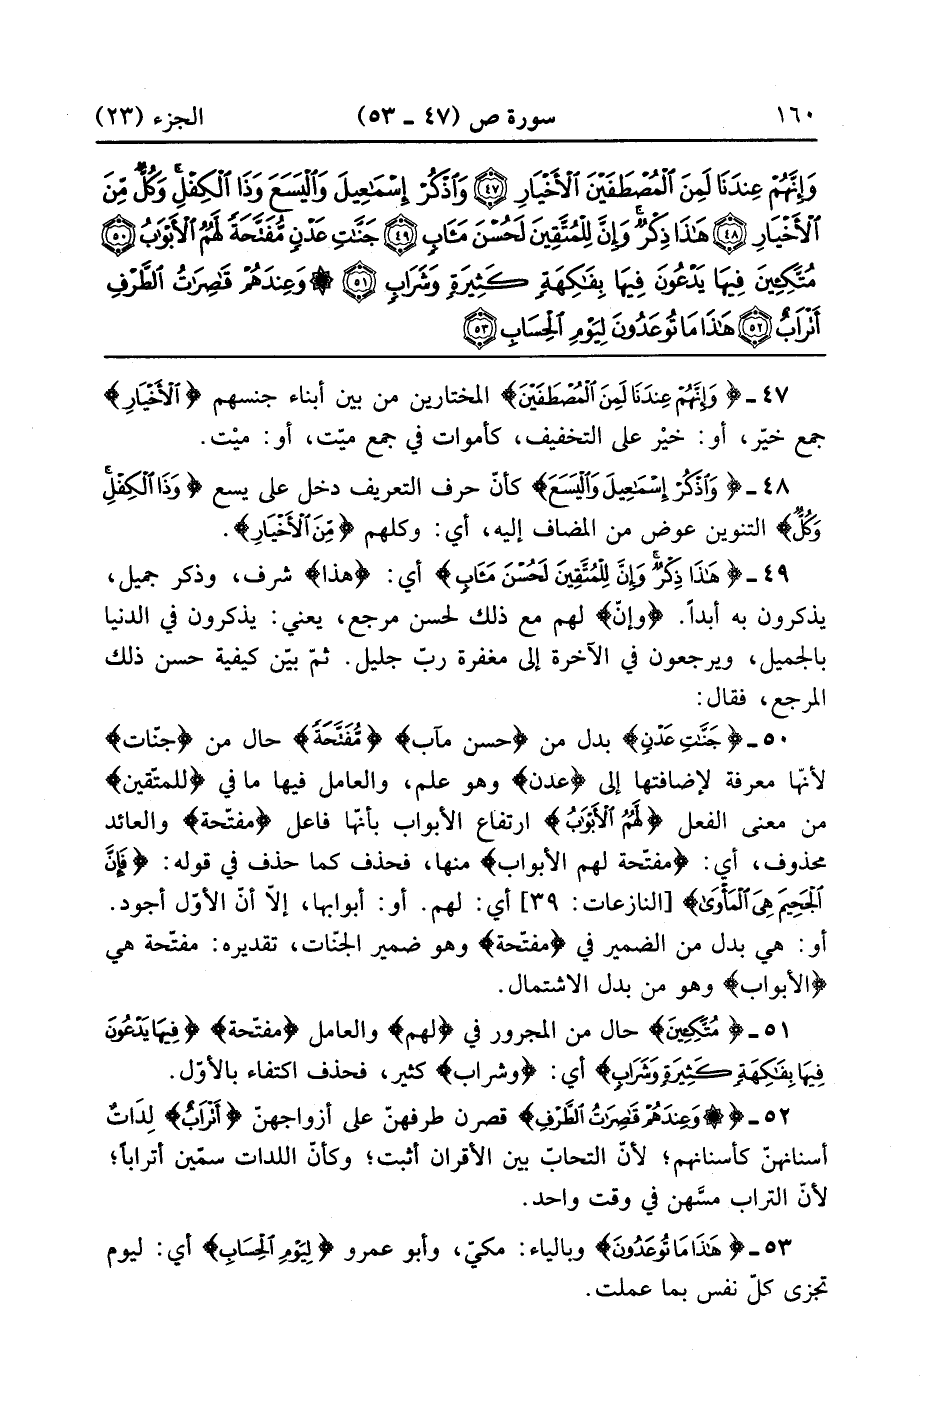 ١٦٠ سورة ص (٤٧ ـ ٥٣) الجزء (٢٣)
وَإِنَّهُمْ عِندَنَا لَمِنَ ٱلْمُصْطَفَيْنَ ٱلْأَخْيَارِ ﴿٤٧﴾ وَٱذْكُرْ إِسْمَٰعِيلَ وَٱلْيَسَعَ وَذَا ٱلْكِفْلِ ۖ وَكُلٌّ مِّنَ
ٱلْأَخْيَارِ ﴿٤٨﴾ هَٰذَا ذِكْرٌ ۚ وَإِنَّ لِلْمُتَّقِينَ لَحُسْنَ مَـَٔابٍ ﴿٤٩﴾ جَنَّٰتِ عَدْنٍ مُّفَتَّحَةً لَّهُمُ ٱلْأَبْوَٰبُ ﴿٥٠﴾
مُتَّكِـِٔينَ فِيهَا يَدْعُونَ فِيهَا بِفَٰكِهَةٍ كَثِيرَةٍ وَشَرَابٍ ﴿٥١﴾ ۞ وَعِندَهُمْ قَٰصِرَٰتُ ٱلطَّرْفِ
أَتْرَابٌ ﴿٥٢﴾ هَٰذَا مَا تُوعَدُونَ لِيَوْمِ ٱلْحِسَابِ ﴿٥٣﴾
٤٧ ـ ﴿وَإِنَّهُمْ عِندَنَا لَمِنَ ٱلْمُصْطَفَيْنَ﴾ المختارين من بين أبناء جنسهم ﴿ٱلْأَخْيَارِ﴾
جمع خيّر، أو: خيْر على التخفيف، كأموات في جمع ميّت، أو: ميْت.
٤٨ ـ ﴿وَٱذْكُرْ إِسْمَٰعِيلَ وَٱلْيَسَعَ﴾ كأنّ حرف التعريف دخل على يسع ﴿وَذَا ٱلْكِفْلِ ۖ
وَكُلٌّ﴾ التنوين عوض من المضاف إليه، أي: وكلهم ﴿مِّنَ ٱلْأَخْيَارِ﴾.
٤٩ ـ ﴿هَٰذَا ذِكْرٌ ۚ وَإِنَّ لِلْمُتَّقِينَ لَحُسْنَ مَـَٔابٍ﴾ أي: ﴿هذا﴾ شرف، وذكر جميل،
يذكرون به أبداً. ﴿وإنّ﴾ لهم مع ذلك لحسن مرجع، يعني: يذكرون في الدنيا
بالجميل، ويرجعون في الآخرة إلى مغفرة ربّ جليل. ثمّ بيّن كيفية حسن ذلك
المرجع، فقال:
٥٠ ـ ﴿جَنَّٰتِ عَدْنٍ﴾ بدل من ﴿حسن مآب﴾ ﴿مُّفَتَّحَةً﴾ حال من ﴿جنّات﴾
لأنّها معرفة لإضافتها إلى ﴿عدن﴾ وهو علم، والعامل فيها ما في ﴿للمتّقين﴾
من معنى الفعل ﴿لَّهُمُ ٱلْأَبْوَٰبُ﴾ ارتفاع الأبواب بأنّها فاعل ﴿مفتّحة﴾ والعائد
محذوف، أي: ﴿مفتّحة لهم الأبواب﴾ منها، فحذف كما حذف في قوله: ﴿فَإِنَّ
ٱلْجَحِيمَ هِىَ ٱلْمَأْوَىٰ﴾ [النازعات: ٣٩] أي: لهم. أو: أبوابها، إلاّ أنّ الأوّل أجود.
أو: هي بدل من الضمير في ﴿مفتّحة﴾ وهو ضمير الجنّات، تقديره: مفتّحة هي
﴿الأبواب﴾ وهو من بدل الاشتمال.
٥١ ـ ﴿مُتَّكِـِٔينَ﴾ حال من المجرور في ﴿لهم﴾ والعامل ﴿مفتّحة﴾ ﴿فِيهَا يَدْعُونَ
فِيهَا بِفَٰكِهَةٍ كَثِيرَةٍ وَشَرَابٍ﴾ أي: ﴿وشراب﴾ كثير، فحذف اكتفاء بالأوّل.
٥٢ ـ ﴿۞ وَعِندَهُمْ قَٰصِرَٰتُ ٱلطَّرْفِ﴾ قصرن طرفهنّ على أزواجهنّ ﴿أَتْرَابٌ﴾ لِدَاتٌ
أسنانهنّ كأسنانهم؛ لأنّ التحابّ بين الأقران أثبت؛ وكأنّ اللدات سمّين أتراباً؛
لأنّ التراب مسَّهن في وقت واحد.
٥٣ ـ ﴿هَٰذَا مَا تُوعَدُونَ﴾ وبالياء: مكيّ، وأبو عمرو ﴿لِيَوْمِ ٱلْحِسَابِ﴾ أي: ليوم
تجزى كلّ نفس بما عملت.